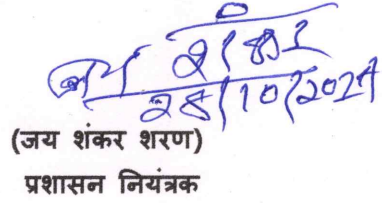 जय शंकर
28/10/2024
(जय शंकर शरण)
प्रशासन नियंत्रक